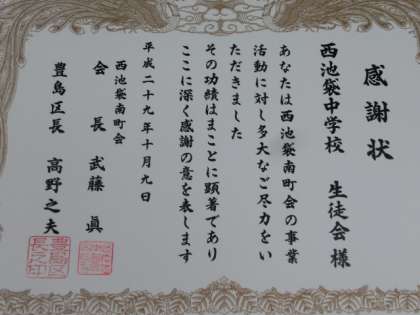 感謝状
西池袋中学校 生徒会様
あなたは西池袋南町会の事業
活動に対し多大なご尽力をい
ただきました
その功績はまことに顕著であり
ここに深く感謝の意を表します
平成二十九年十月九日
西池袋南町会
会長 武藤眞
豊島区長 高野之夫
豊島区
長之印